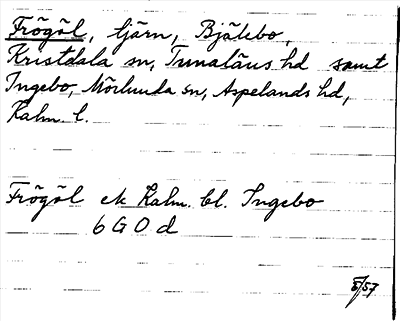 Frögöl, tjärn, Bjälebo,
Kristdala sn, Tunaläns hd samt
Ingebo, Mörlunda sn, Aspelands hd,
Kalm. l.
Frögöl ek Kalm. bl. Ingebo
6 G O d
8/57